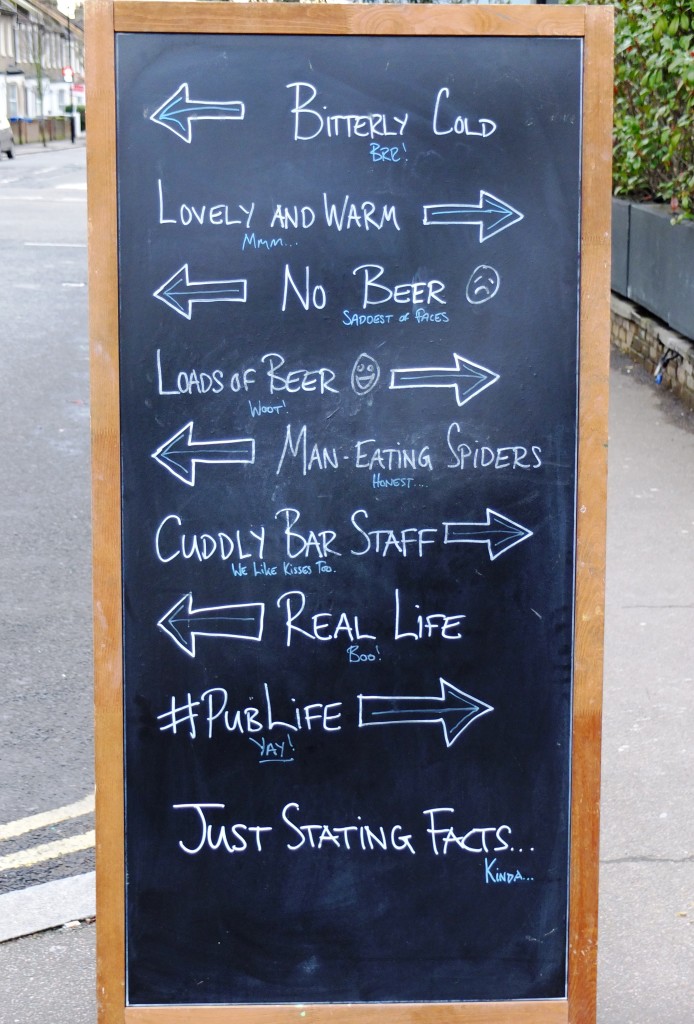 Bitterly Cold
Brr!
Lovely and Warm
Mmm...
No Beer
Saddest of Faces
Loads of Beer
Woot!
Man-Eating Spiders
Honest...
Cuddly Bar Staff
We Like Kisses Too.
Real Life
Boo!
#PubLife
Yay!
Just Stating Facts...
Kinda...